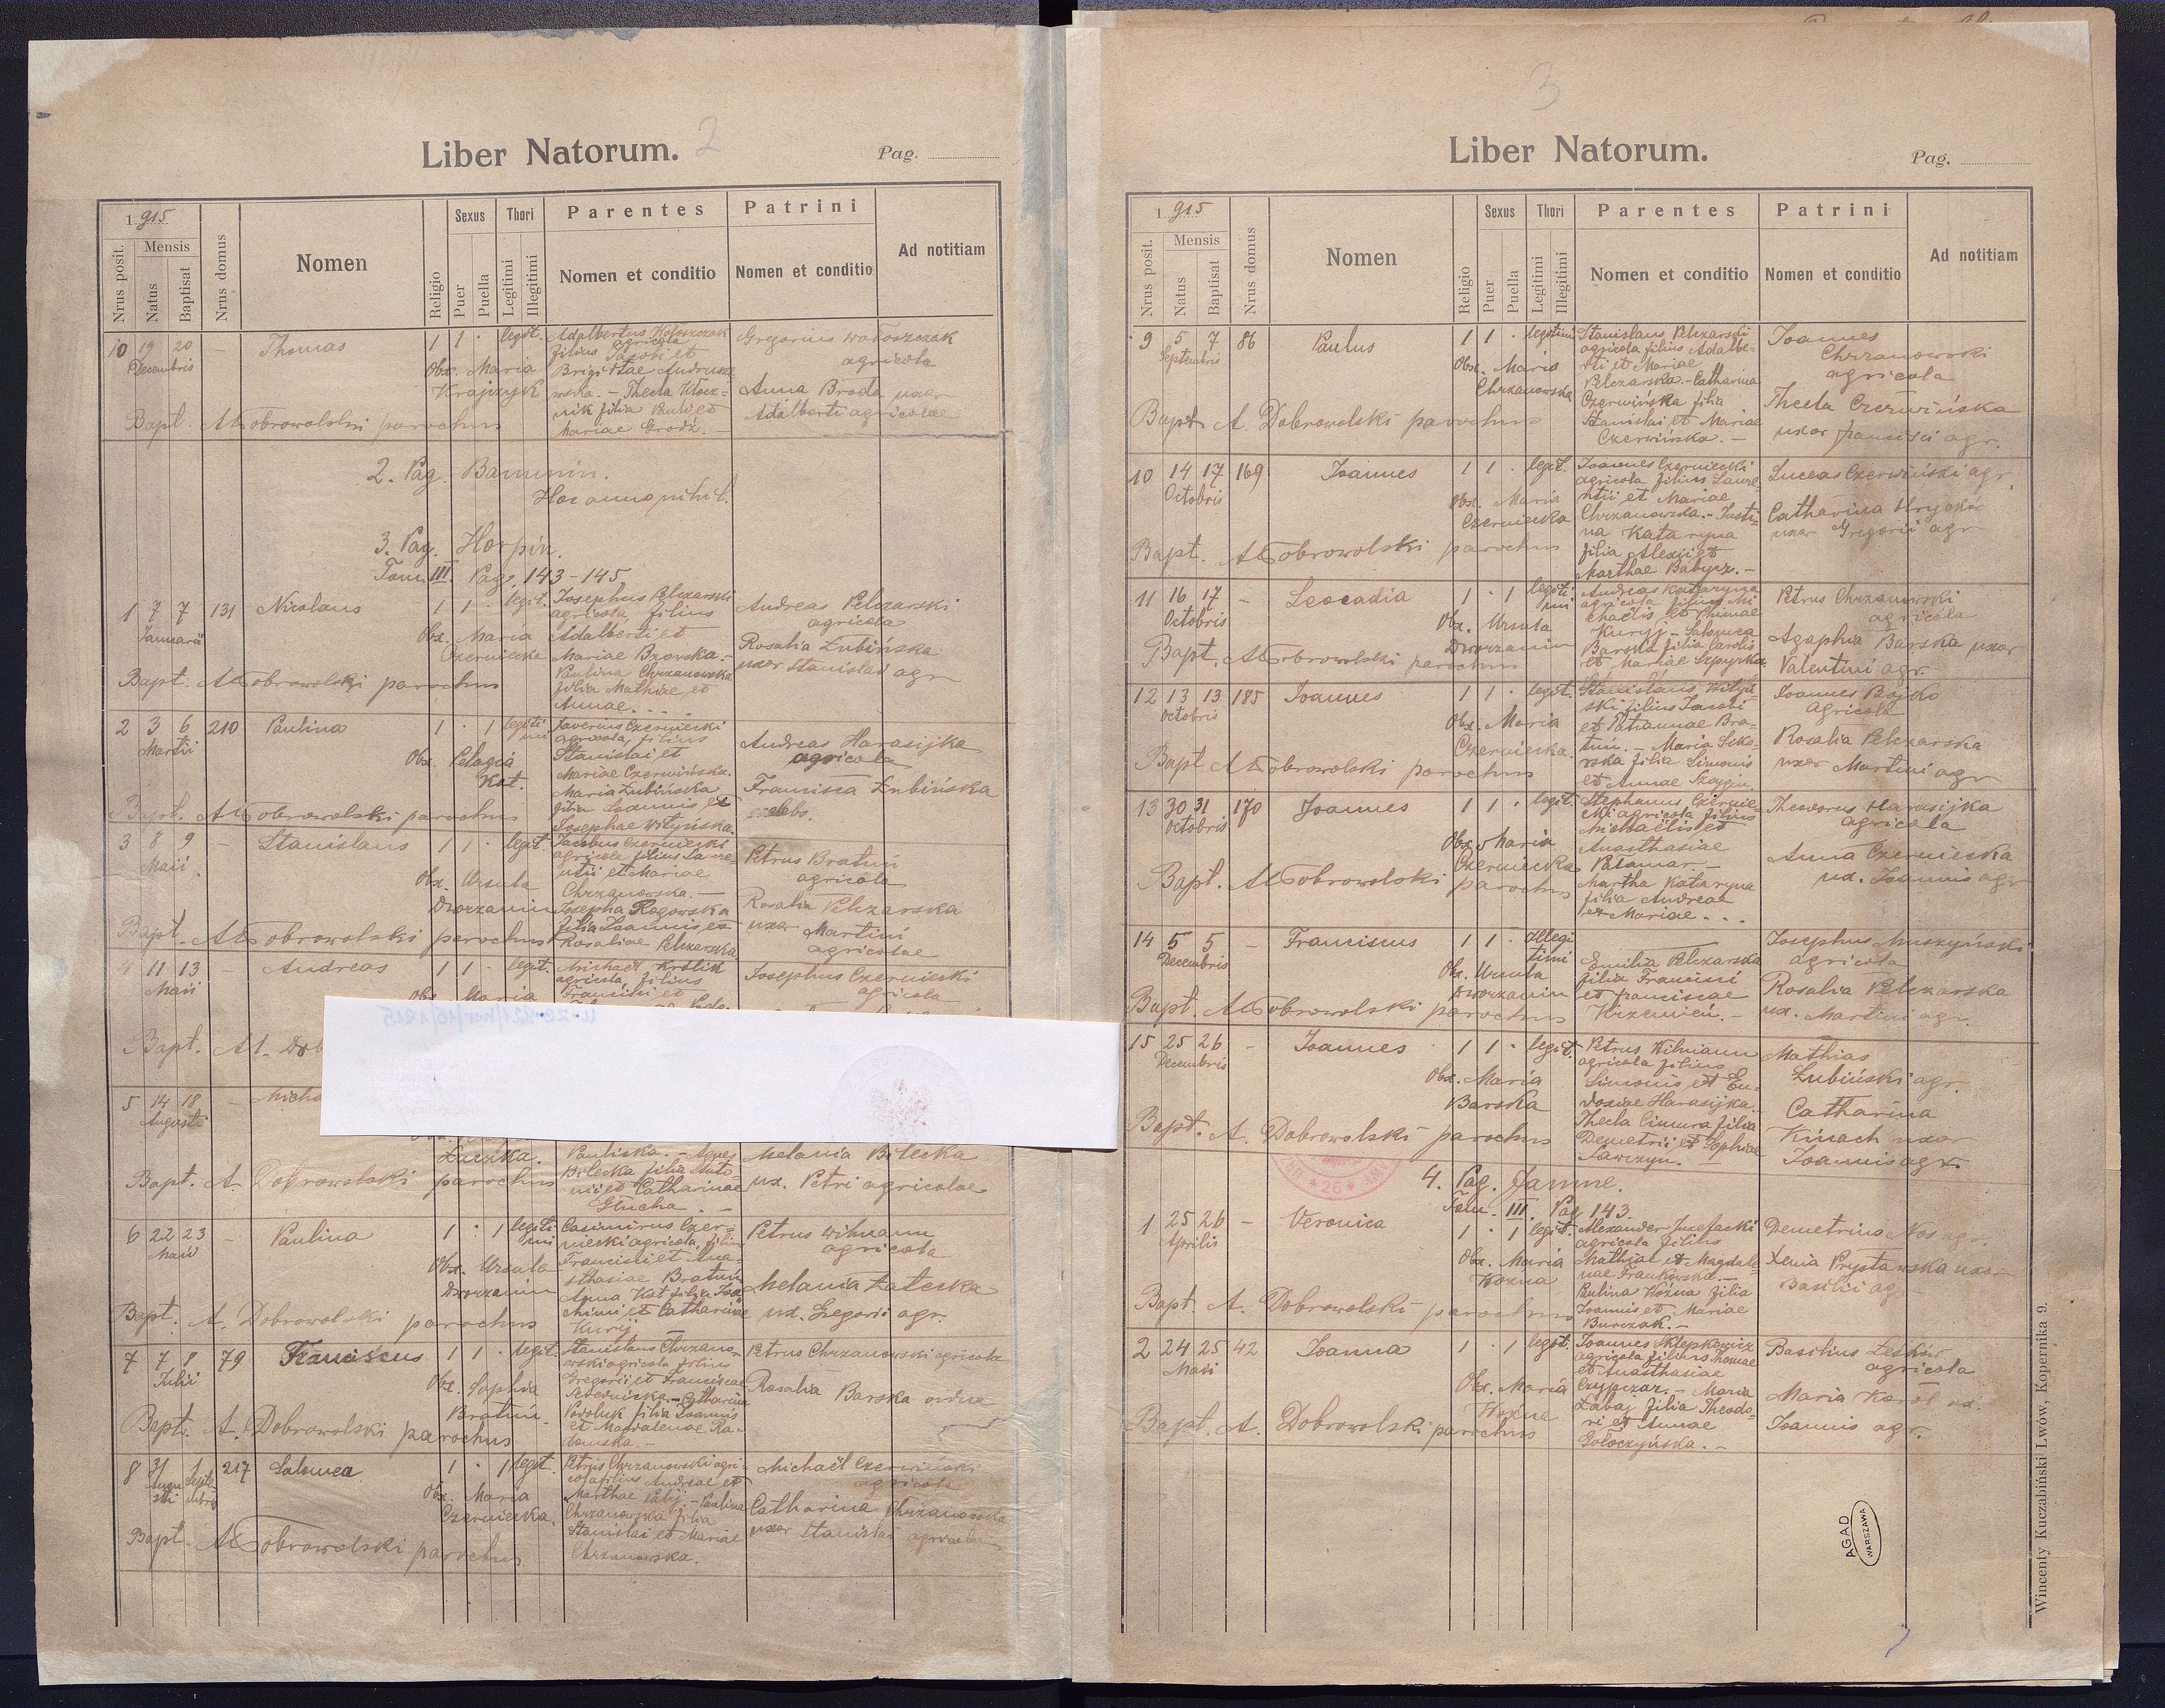 Liber Natorum.
2
Pag.
1915
Nrus posit.
Mensis
Natus
Baptisat
Nrus domus
Nomen
Religio
Sexus
Puer
Puella
Thori
Legitimi
Illegitimi
Parentes
Nomen et conditio
Patrini
Nomen et conditio
Ad notitiam
10 19 20 - Thomas 1 1 · legit.
Decembris
Obs. Maria
Krajczyk
Adalbertus Wołoszczak
agricola
filius Jacobi et
Brigittae Andrusze
wska. - Thecla Klocz=
nik filia Pauli et
Mariae Grodź. -
Gregorius Wołoszczak
agricola
Anna Broda uxor
Adalberti agricolae
Bapt. A. Dobrowolski parochus
2. Pag. Banunin.
Hoc anno nihil.
3. Pag. Horpin.
Tom. III. Pag. 143-145
1 7 7 131 Nicolaus 1 1 · legit.
Januarii
Obs. Maria
Czerniecka
Josephus Pelczarski
agricola, filius
Adalberti et
Mariae Bzovska. -
Paulina Chrzanowska
filia Mathiae et
Annae. . .
Andreas Pelczarski
agricola
Rosalia Łubińska
uxor Stanislai agr
Bapt. A. Dobrowolski parochus
2 3 6 210 Paulina 1 · 1 legiti
mi
Martii
Obs. Pelagia
Kat.
Xaverius Czerniecki
agricola, filius
Stanislai et
Mariae Czerwińska.
Maria Łubińska
filia Joannis et
Josephae Wityńska.
Andreas Harasijka
agricola
Francisca Łubińska
caelebs.
Bapt. A. Dobrowolski parochus
3 8 9 - Stanislaus 1 1 · legit.
Maii
Obs. Ursula
Dworzanin
Jacobus Czerniecki
agricola filius Laure=
ntii et Mariae
Chrzanowska. -
Josepha Rogowska
filia Joannis et
Rosaliae Pelczarska
Petrus Bratuń
agricola
Rosalia Pelczarska
uxor Martini
agricolae
Bapt. A. Dobrowolski parochus
4 11 13 - Andreas 1 1 · legit.
Maii
Obs. Maria
Michael Królik
agricola, filius
Francisci et
Josephus Czerniecki
agricola
Bapt. A. Dob
5 14 18 - Micha
Augusti
Łucika.
Pauliska. - Agnes
Bilecka filia Anto
nii et Catharinae
Głucha. -
Melania Bilecka
ux. Petri agricolae
Bapt. A. Dobrowolski parochus
6 22 23 - Paulina 1 · 1 legiti
mi
Maii
Obs. Ursula
Dworzanin
Casimirus Czer=
niecki agricola, filius
Francisci et Ana
sthasiae Bratuń
Anna Kat filia Joa
chimi et Catharinae
Kurij
Petrus Wilmann
agricola
Melania Łatecka
ux. Gregorii agr.
Bapt. A. Dobrowolski parochus
7 7 8 79 Franciscus 1 1 · legit.
Julii
Obs. Sophia
Bratuń.
Stanislaus Chrzano=
wski agricola filius
Gregorii et Franciscae
Catharina
filia Joannis
et Magdalenae Ra=
domska. -
Petrus Chrzanowski agricola
Rosalia Barska vidua
Bapt. A. Dobrowolski parochus
8 31 1 217 Salomea 1 · 1 legit.
Augu
sti
Septe
mbris
Obs. Maria
Czerniecka.
Petrus Chrzanowski agri=
cola filius Andreae et
Marthae Palij. - Paulina
Chrzanowska filia
Stanislai et Mariae
Chrzanowska.
Michaël Czerwiński
agricola
Catharina Chrzanowska
uxor Stanislai agricolae
Bapt. A. Dobrowolski parochus
3
Liber Natorum.
Pag.
1915
Nrus posit.
Mensis
Natus
Baptisat
Nrus domus
Nomen
Religio
Sexus
Puer
Puella
Thori
Legitimi
Illegitimi
Parentes
Nomen et conditio
Patrini
Nomen et conditio
Ad notitiam
9 5 7 86 Paulus 1 1 · legitimi
Septembris
Obs. Maria
Chrzanowska
Stanislaus Pelczarski
agricola filius Adalbe-
rti et Mariae
Pelczarska. - Catharina
Czerwińska filia
Stanislai et Mariae
Czerwińska. -
Joannes
Chrzanowski
agricola
Thecla Czerwińska
uxor Francisci agr.
Bapt. A. Dobrowolski parochus
10 14 17 169 Joannes 1 1 · legit.
Octobris
Obs. Maria
Czerniecka
Joannes Czerniecki
agricola filius Laure
ntii et Mariae
Chrzanowska. - Justi=
na Kataryna
filia Alexii et
Marthae Babycz. -
Luceas Czerwiński agr.
Catharina Hryckow
uxor Gregorii agr
Bapt. A. Dobrowolski parochus
11 16 17 - Leocadia 1 · 1 legiti
mi
Octobris
Obs. Ursula
Dworzanin
Andreas Kataryna
agricola filius Mi
chaelis et Annae
Kuryj - Salomea
Barska filia Caroli
et Mariae Szpyrka.
Petrus Chrzanowski
agricola
Agaphia Barska uxor
Valentini agr.
Bapt. A. Dobrowolski parochus
12 13 13 185 Joannes 1 1 · legit.
Octobris
Obs. Maria
Czerniecka.
Stanislaus Wityń
ski filius Jacobi
et Marianae Bra=
tuń. - Maria Siko=
rska filia Simonis
et Annae
Joannes Bojko
agricola
Rosalia Pelczarska
uxor Martini agr
Bapt A. Dobrowolski parochus
13 30 31 170 Joannes 1 1 · legit.
Octobris
Obs. Maria
Czerniecka
Stephanus Czernie
cki agricola filius
Michaëlis et
Anasthasiae
Palamar -
Martha Kataryna
filia Andreae
et Mariae. . .
Theodorus Harasijka
agricola
Anna Czerniecka
ux. Joannis agr
Bapt. A. Dobrowolski parochus
14 5 5 - Franciscus 1 1 · Illegi
timi
Decembris
Obs. Ursula
Dworzanin
Emilia Pelczarska
filia Francisci
et Franciscae
Krzemień. -
Josephus Muszyński
agricola
Rosalia Pelczarska
ux. Martini agr.
Bapt. A. Dobrowolski parochus
15 25 26 - Joannes 1 1 · legit.
Decembris
Obs. Maria
Barska
Petrus Wilmann
agricola filius
Simonis et Eu=
doxiae Harasijka.
Thecla Cimura filia
Demetrii et Sophiae
Sawczyn. -
Mathias
Łubiński agr.
Catharina
Kinach uxor
Joannis agr.
Bapt. A. Dobrowolski parochus
4. Pag. Jamne.
Tom. III. Pag 143.
1 25 26 - Veronica 1 · 1 legit.
Aprilis
Obs. Maria
Woźna
Alexander Juzefacki
agricola filius
Mathiae et Magdale
nae Frankowska. -
Paulina Woźna filia
Joannis et Mariae
Burczak. -
Demetrius Nos agr.
Xenia Prystawska uxor
Basilii agr.
Bapt. A. Dobrowolski parochus
2 24 25 42 Joanna 1 · 1 legit.
Maii
Obs. Maria
Woźna
Joannes Sklepkowicz
agricola filius Thomae
et Anasthasiae
Czypczar. - Maria
Zabaj filia Theodo=
ri et Annae
Gołoczyńska. -
Basilius Leśków
agricola
Maria Karol ux.
Joannis agr.
Bapt. A. Dobrowolski parochus
AGAD
WARSZAWA
Wincenty Kuczabiński Lwów, Kopernika 9.